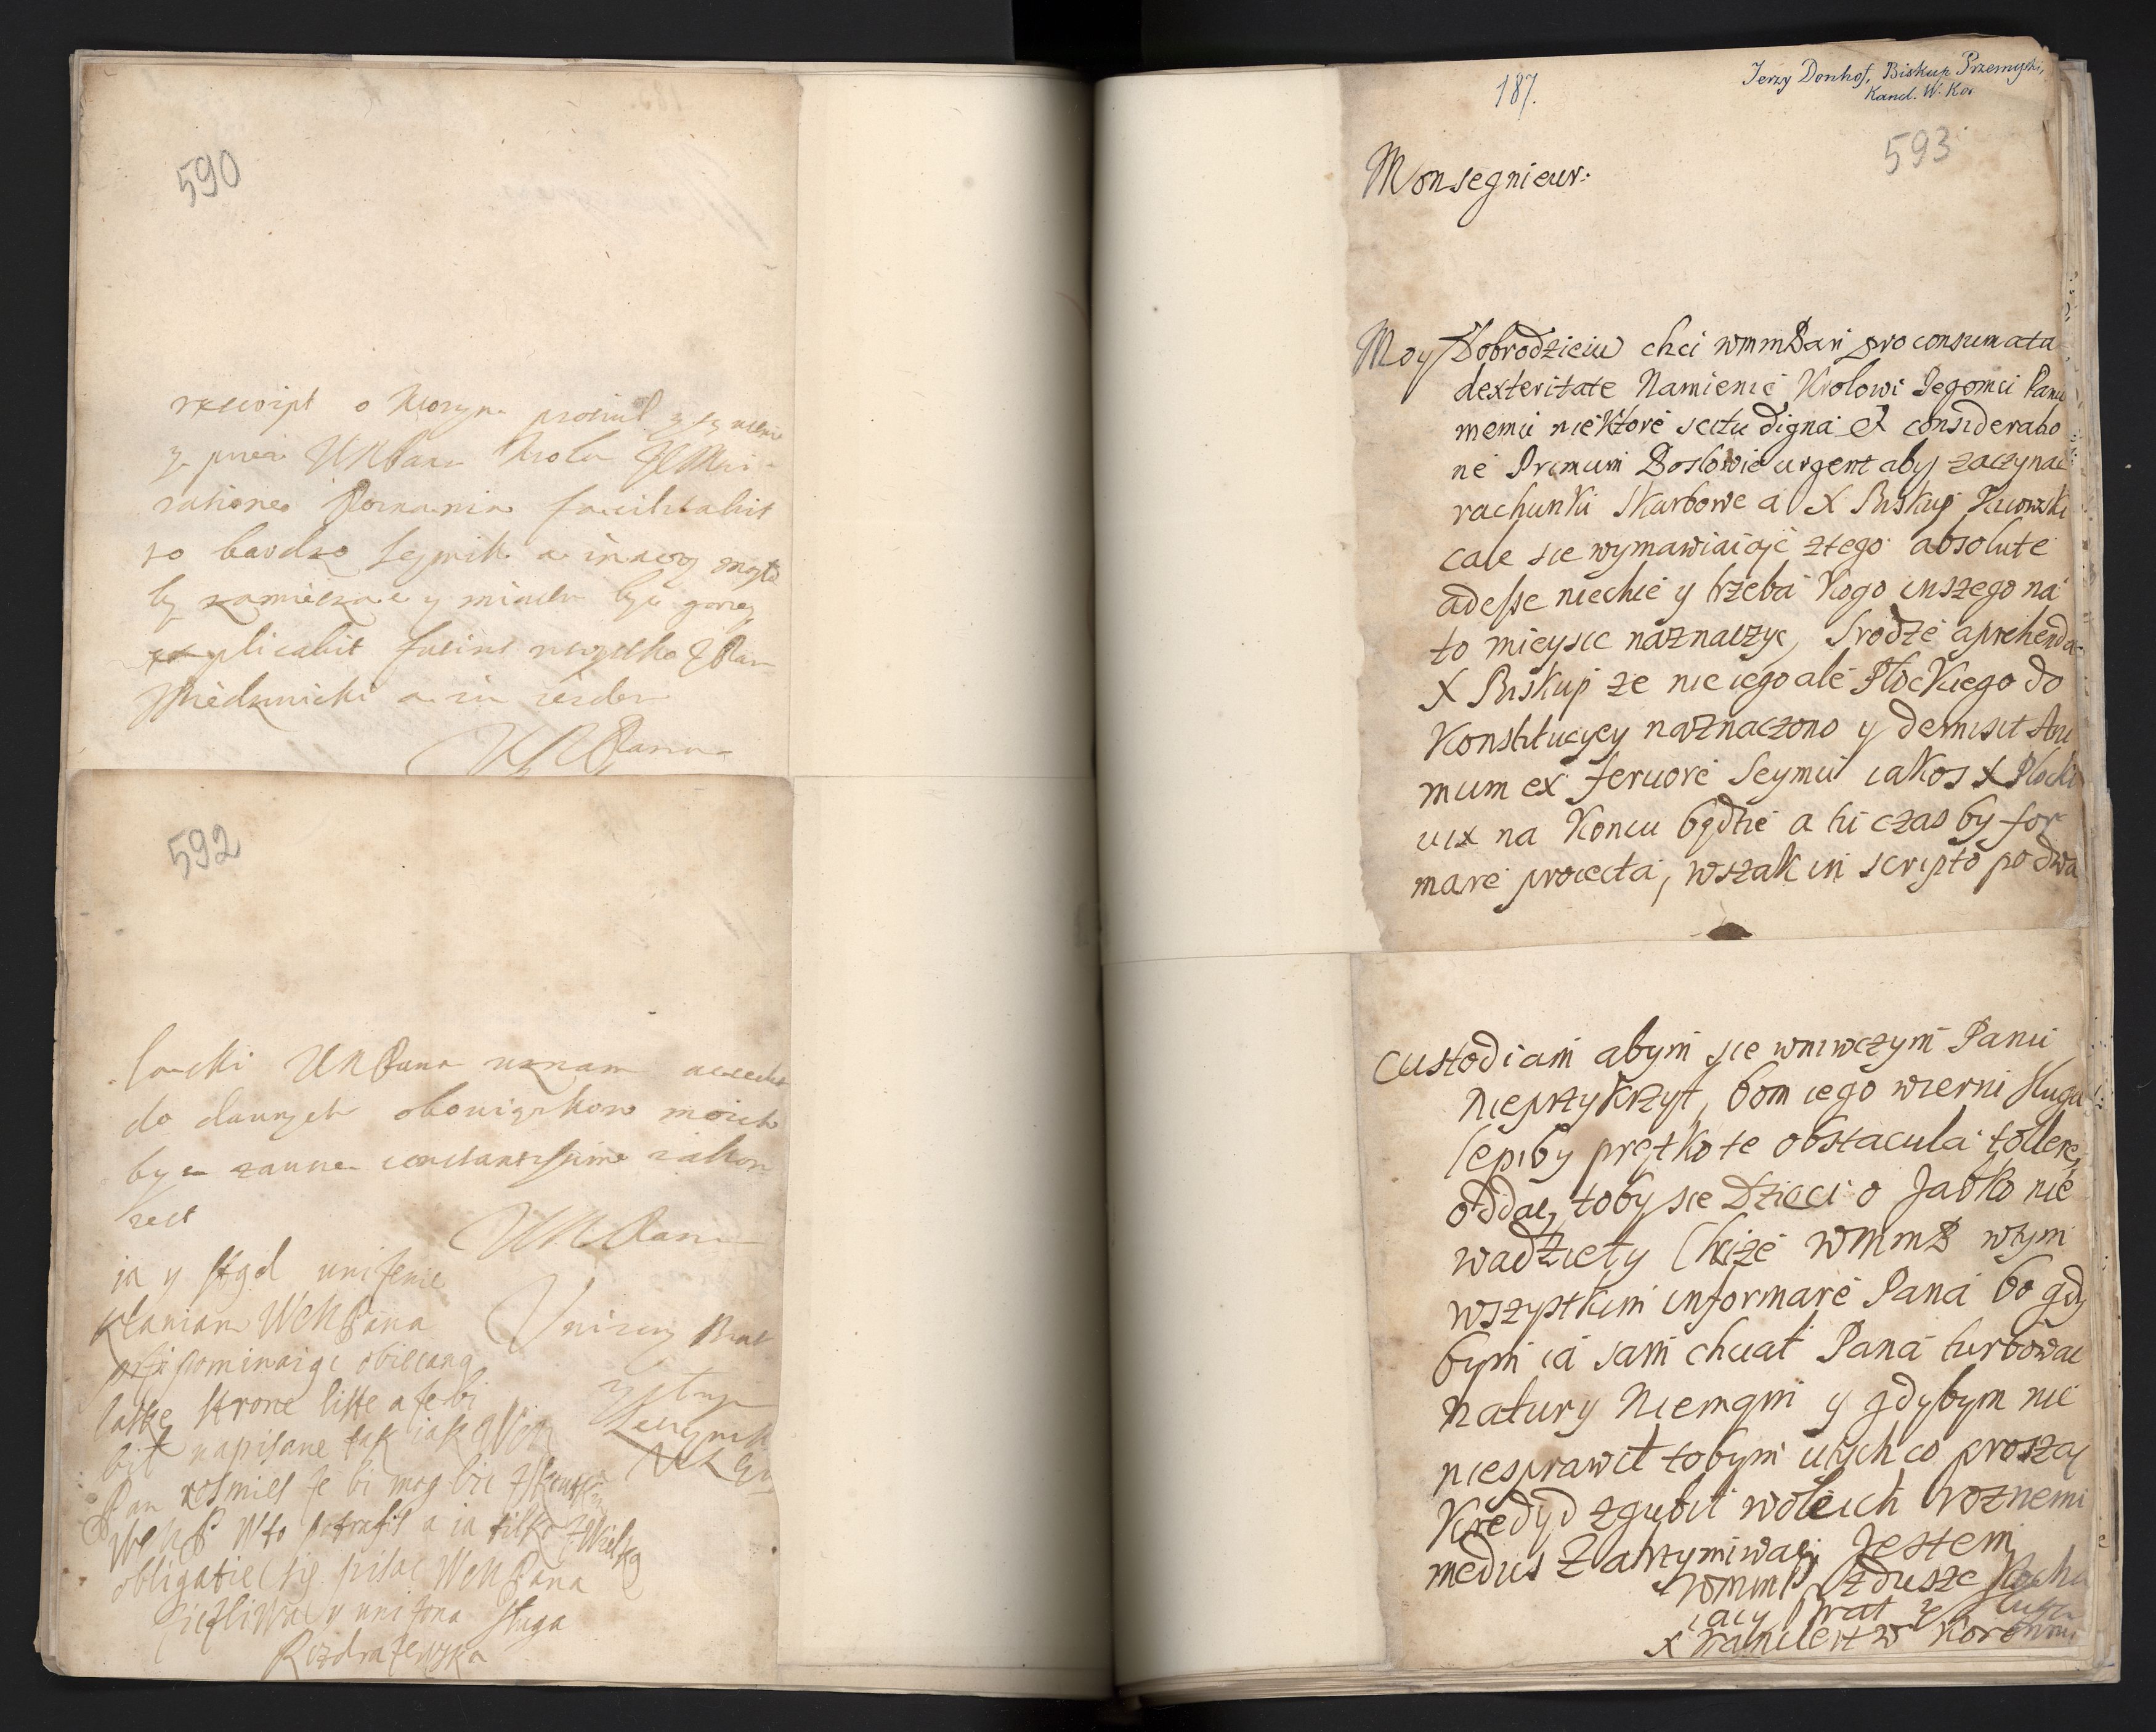 590
rescript o ktorym prosiul
y przez WMPana Krola JEMci
rationes Poznania facilitabit
to bardzo seymik a inaczej
by zamieszac y miasta bydz gorzej
explicabit fusius wszystko JPan
Miedzwiecki a in
WMPana
592
laski WMPana uznam
do dawnych obowiązkow moich
bym zawsze constantissime iakom
iest
WMPana
ja y stąd uniżenie
kłaniam WcMPana
przipominaigc obiecaną
laskę strone liste ażebi
bił napisane tak iak
Pan rosmiel że bi mog bic
WcMP w to potrafil a ia tilko z Wielką
obligatie się pisac WcMPana
życzliwa y uniżona sługa
Rozdrażewska
Unizony Brat
y sługa
187.
Jerzy Donhof, Biskup Przemyski,
Kancl. W. Kor
593
Monsegnieur.
Moy Dobrodzieiu chci WMMPan pro consumata
dexteritate Namienić Krolowi Jegomci Panu
memu niektore scitu digna et consideratio
ne Primum Posłowie urgent aby zaczynac
rachunki Skarbowe a X Biskup Kiiowski
cale sie wymawiaiąc z tego absolute
adesse niechce y trzeba kogo inszego na
to mieysce naznaczyc, srodze aprehendu
X Biskup ze nie iego ale Płockiego do
Konstitucyey naznaczono y demisit Ani
mum ex feruore Seymu iakos X Płocki
vix na koncu będzie a tu czas by for
mare proiecta, wszak in scripto podwa
custodiam abym sie w niwczym Panu
nieprzykrzył, bom iego wierni sługa
lepiby prętko te obstacula tollere,
oddac, toby sie Dzieci o Jabko nie
wadziely Chciże WMMP w tym
wszystkim informare Pana bo gdy
bym ia sam chciał Pana turbowac
natury Niemąm y gdybym nie
niesprawił tobym u tych co proszą
Kredyd zgubił wole ich roznemi
medus zatrzymiwac, Jestem
WMMP z dusze Kocha
iący Brat y sługa
X Kanclerz W Koronni